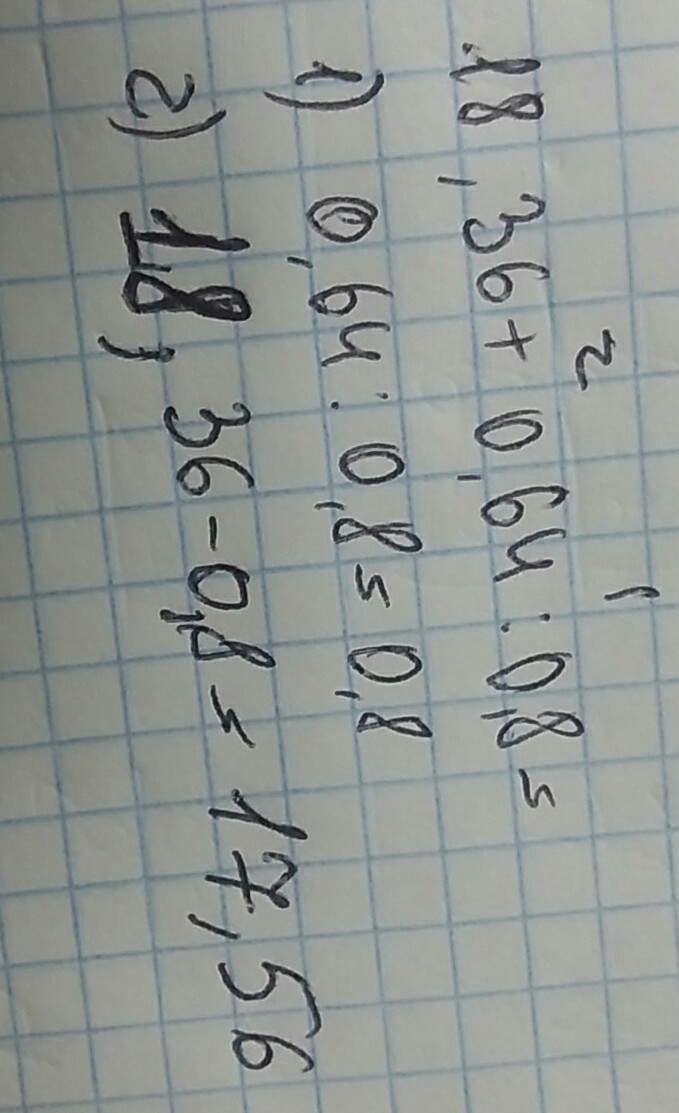 2 1
18,36 + 0,64 : 0,8 =
1) 0,64 : 0,8 = 0,8
2) 18,36 - 0,8 = 17,56